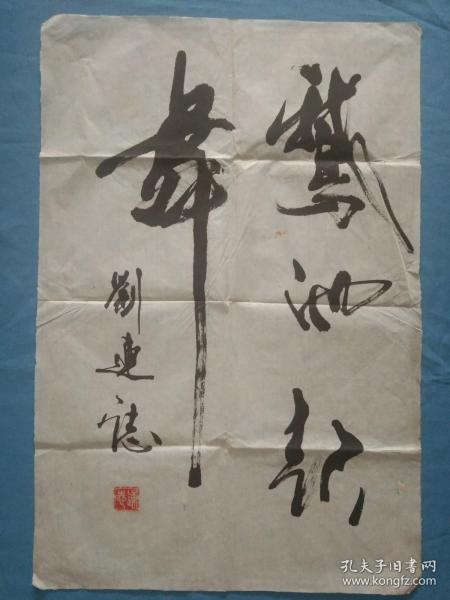 鵞池起
舞
劉連誌
孔夫子旧书网
www.kongfz.com